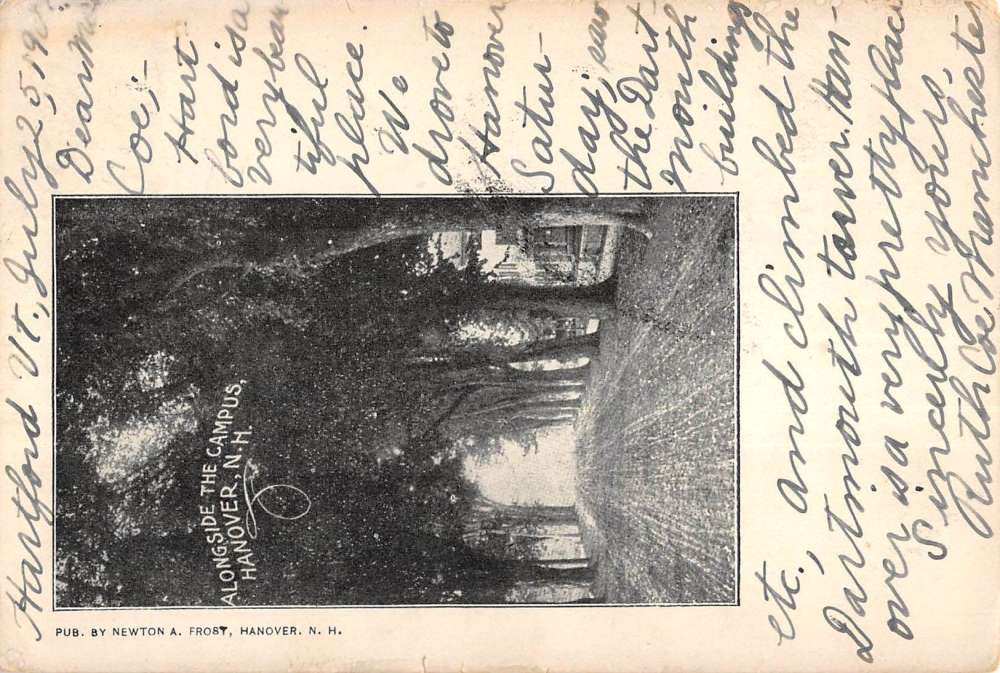 Hartford Vt., July 25, 190
Dear Mr.
Coe;-
Hart
ford is a
very beau
tiful
place.
We
drove to
Hanover
Satur-
day, saw
the Dart
mouth
building
etc., and climbed the
Dartmouth tower. Han-
over is a very pretty place
Sincerely yours,
Ruth Coe Manchester
ALONGSIDE THE CAMPUS,
HANOVER, N.H.
PUB. BY NEWTON A. FROST, HANOVER. N. H.